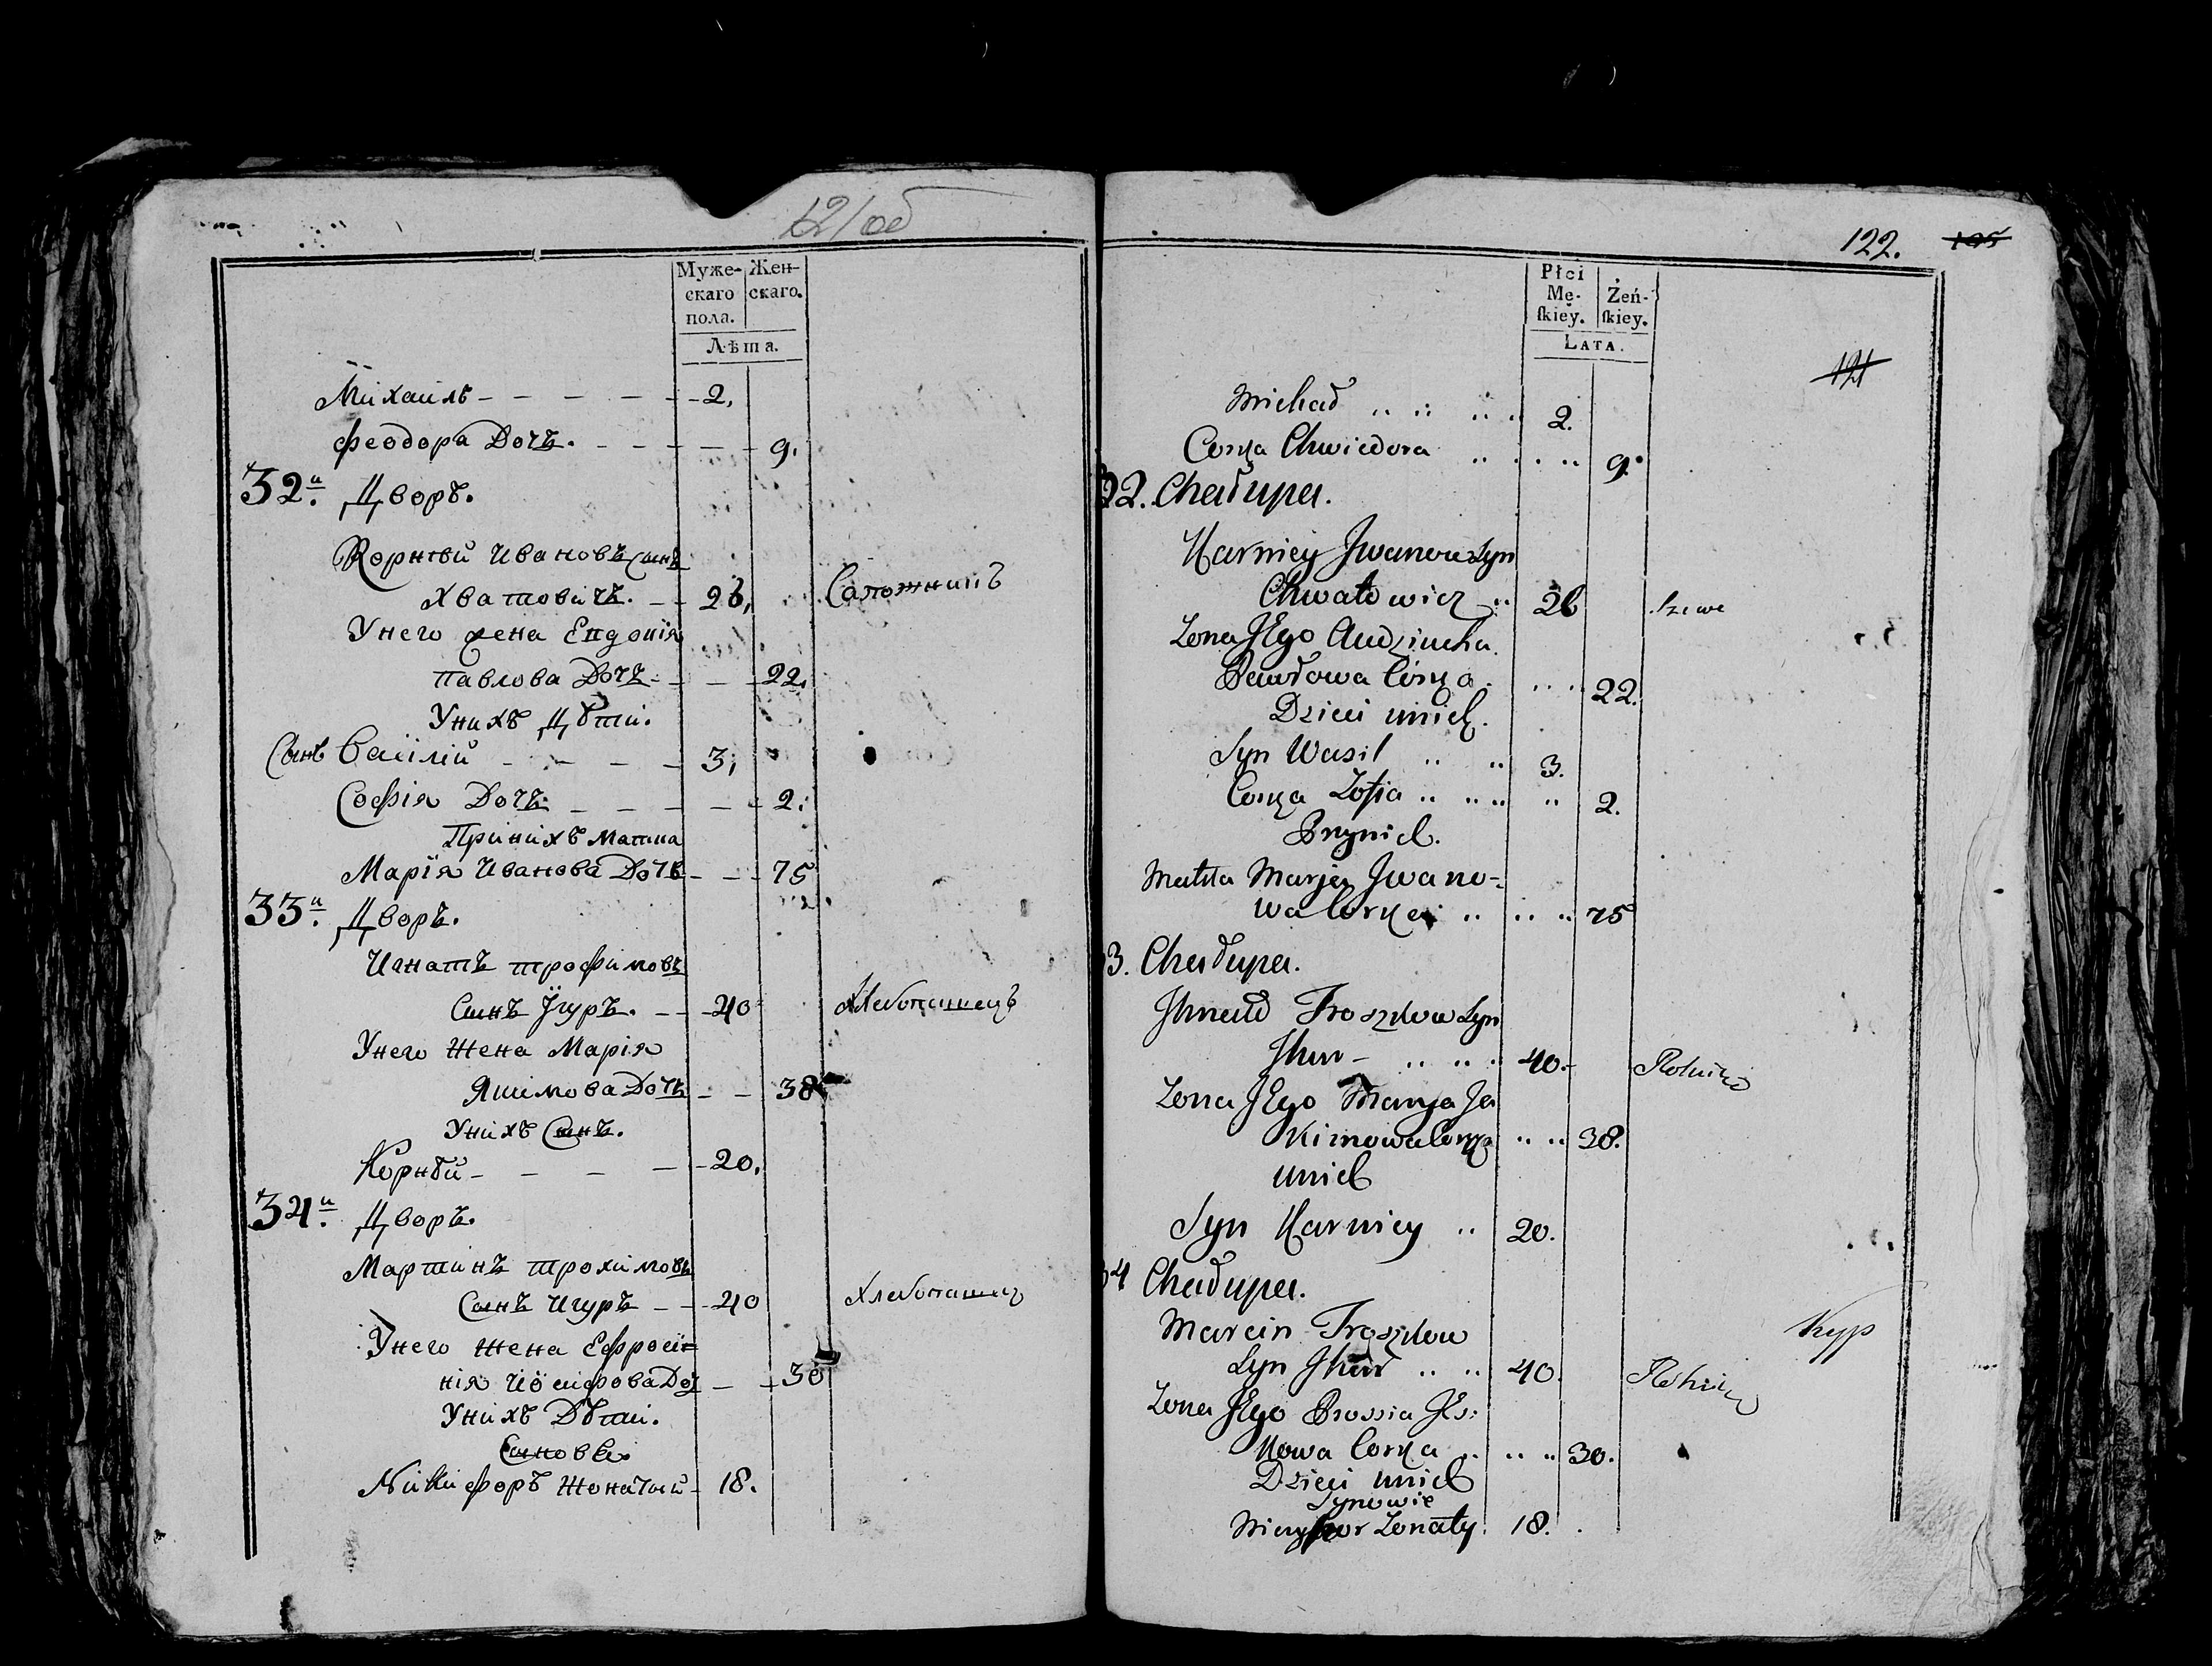 121об
Муже-
скаго
пола.
Жен-
скаго.
Лѣта.
Михаилъ - - - - - 2,
Феодора Дочь. - - - - 9.
32й. Дворъ.
Корнѣй Ивановъ Сынъ
Хватовичь. - - 26, Сапожникъ
У него жена Евдокія
Павлова Дочь - - - 22.
У нихъ Дѣти.
Сынъ Василій - - - - 3,
Софія Дочь - - - - - 2.
При нихъ матка
Марія Иванова Дочь - - - 75
33й. Дворъ.
Игнатъ Трофимовъ
Сынъ Угуръ. - - 40 Хлебопашецъ
У него жена Марія
Якимова Дочь - - 38
У нихъ Сынъ.
Корнѣй - - - - 20,
34й. Дворъ.
Мартинъ Трохимовъ
Сынъ Игуръ - - 40 Хлебопашец
У него жена Ефроси=
нія Іосифова Доч - - 30
У нихъ Дѣти.
Сыновья
Никифоръ женатый - 18.
122. 195
Płci
Mę-
ſkiey.
Żeń-
ſkiey.
LATA.
121
Michał .. .. .. .. 2.
Corka Chwiedora .. .. .. 9.
32. Chałupa.
Karniey Jwanow Syn
Chwatowicz .. 26
Zona JEgo Audziucha
Pawłowa Córka .. .. 22.
Dzieci unich.
Syn Wasil .. .. 3.
Corka Zofia .. .. .. .. 2.
Przynich.
Matka Marja Jwano-
wa Corka .. .. .. 75
33. Chałupa.
Jhnat Troszkow Syn
Jhur - .. .. .. 40. Rolnik
Zona JEgo Marya Ja
kimowa Corka .. .. 38.
unich
Syn Karniey .. 20.
34 Chałupa.
Marcin Troszkow
Syn Jhur .. .. 40. Rolnik
Zona JEgo Prossia Js:
kowa Corka .. .. .. 30.
Dzieci unich
Synowie
Niczypor Zonaty. 18.